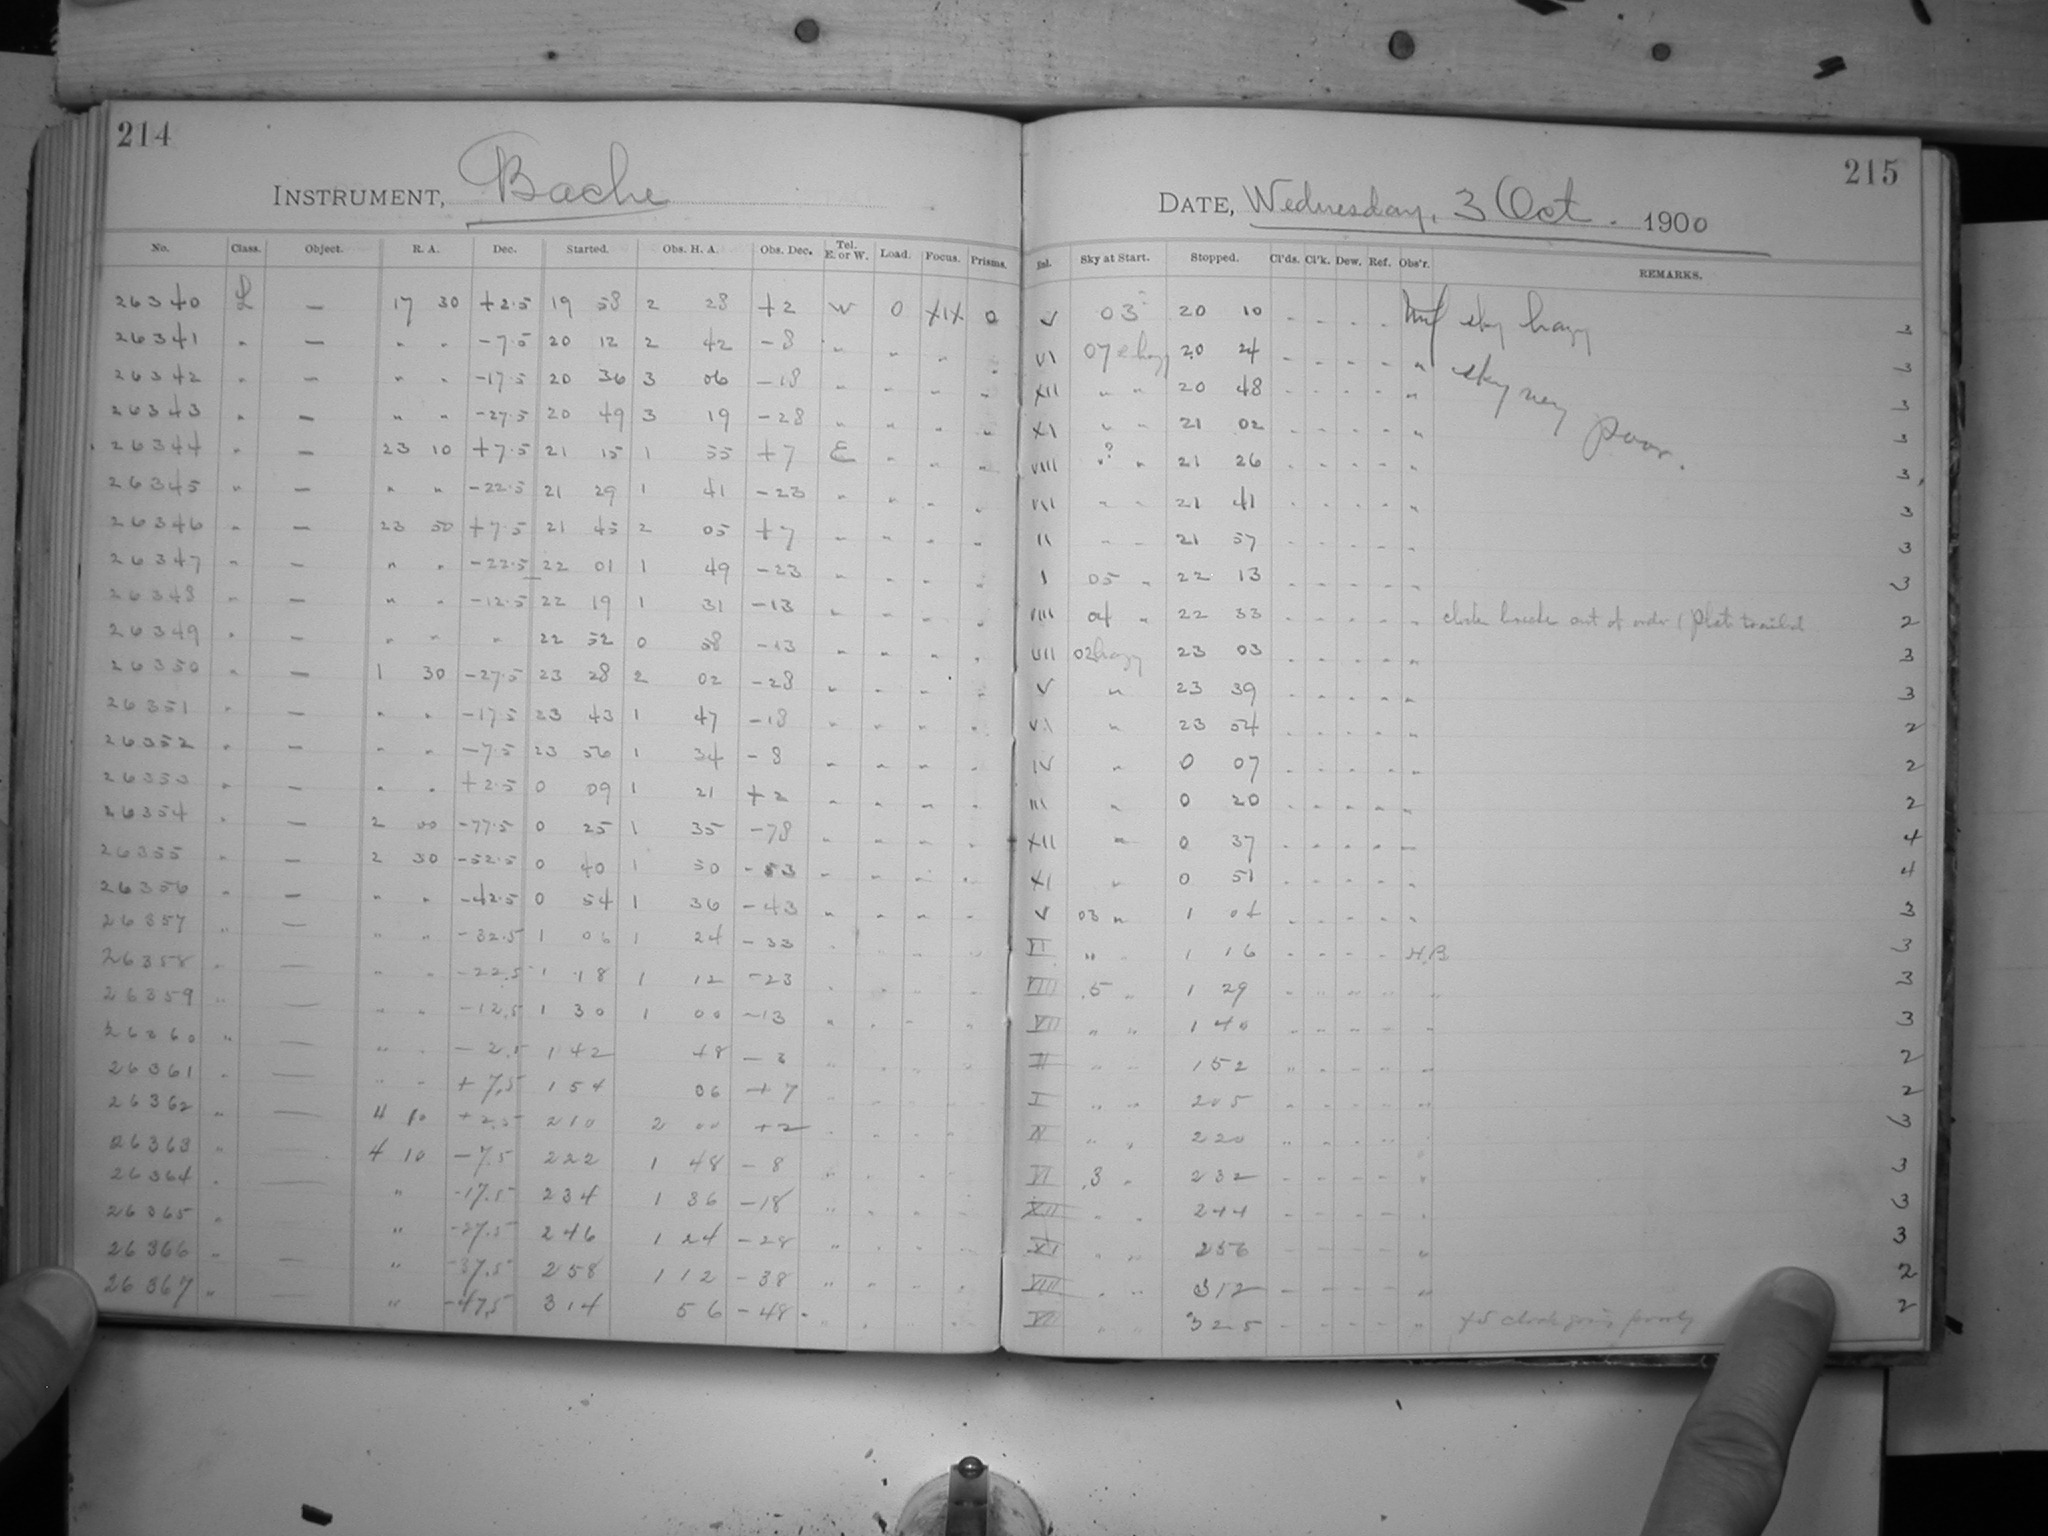 214
INSTRUMENT, Bache
No. Class. Object. R. A. Dec. Started. Obs. H. A. Obs. Dec. Tel. E. or W. Load. Focus. Prisms.
26340 L — 17 30 +2.5 19 58 2 28 +2 W 0 XIX 0
26341 " — " " -7.5 20 12 2 42 -8 " " " "
26342 " — " " -17.5 20 36 3 06 -18 " " " "
26343 " — " " -27.5 20 49 3 19 -28 " " " "
26344 " — 23 10 +7.5 21 15 1 55 +7 E " " "
26345 " — " " -22.5 21 29 1 41 -23 " " " "
26346 " — 23 50 +7.5 21 45 2 05 +7 " " " "
26347 " — " " -22.5 22 01 1 49 -23 " " " "
26348 " — " " -12.5 22 19 1 31 -13 " " " "
26349 " — " " " 22 52 0 58 -13 " " " "
26350 " — 1 30 -27.5 23 28 2 02 -28 " " " "
26351 " — " " -17.5 23 43 1 47 -18 " " " "
26352 " — " " -7.5 23 56 1 34 -8 " " " "
26353 " — " " +2.5 0 09 1 21 +2 " " " "
26354 " — 2 00 -77.5 0 25 1 35 -78 " " " "
26355 " — 2 30 -52.5 0 40 1 50 -53 " " " "
26356 " — " " -42.5 0 54 1 36 -43 " " " "
26357 " — " " -32.5 1 06 1 24 -33 " " " "
26358 " — " " -22.5 1 18 1 12 -23 " " " "
26359 " — " " -12.5 1 30 1 00 -13 " " " "
26360 " — " " -2.5 1 42 48 -3 " " " "
26361 " — " " +7.5 1 54 36 +7 " " " "
26362 " — 4 10 +2.5 2 10 2 00 +2 " " " "
26363 " — 4 10 -7.5 2 22 1 48 -8 " " " "
26364 " — " -17.5 2 34 1 36 -18 " " " "
26365 " " -27.5 2 46 1 24 -28 " " " "
26366 " — " -37.5 2 58 1 12 -38 " " " "
26367 " — " -47.5 3 14 56 -48 " " " "
215
DATE, Wednesday, 3 Oct. 1900
Sky at Start. Stopped. Cl'ds. Cl'k. Dew. Ref. Obs'r. REMARKS.
V 03 20 10 - - - - sky hazy 3
VI 07 hazy 20 24 - - - - " sky very poor. 3
XII " " 20 48 - - - - " 3
XI " " 21 02 - - - - " 3
VIII "? " 21 26 - - - - " 3
VII " " 21 41 - - - - " 3
II " " 21 57 - - - - " 3
I 05 " 22 13 - - - - " 3
VIII 04 " 22 33 - - - - " clock out of order ( Plate trailed 2
VII 02 hazy 23 03 - - - - " 3
V " 23 39 - - - - " 3
VI " 23 54 - - - - " 2
IV " 0 07 - - - - " 2
III " 0 20 - - - - " 2
XII " 0 37 - - - - " 4
XI " 0 51 - - - - " 4
V 03 " 1 04 - - - - " 3
VI " " 1 16 - - - - H.B. 3
VIII .5 " 1 29 - " " " " 3
VII " " 1 40 - - - - " 3
II " " 1 52 " - - - " 2
I " " 2 05 - - - - " 2
IV " " 2 20 " - - " 3
VI .3 " 2 32 - - - - " 3
XII " " 2 44 - - - - 3
XI " " 2 56 - - - - " 3
VIII " " 3 12 - - - - " 2
VII " " 3 25 - - - - " clock going poorly 2